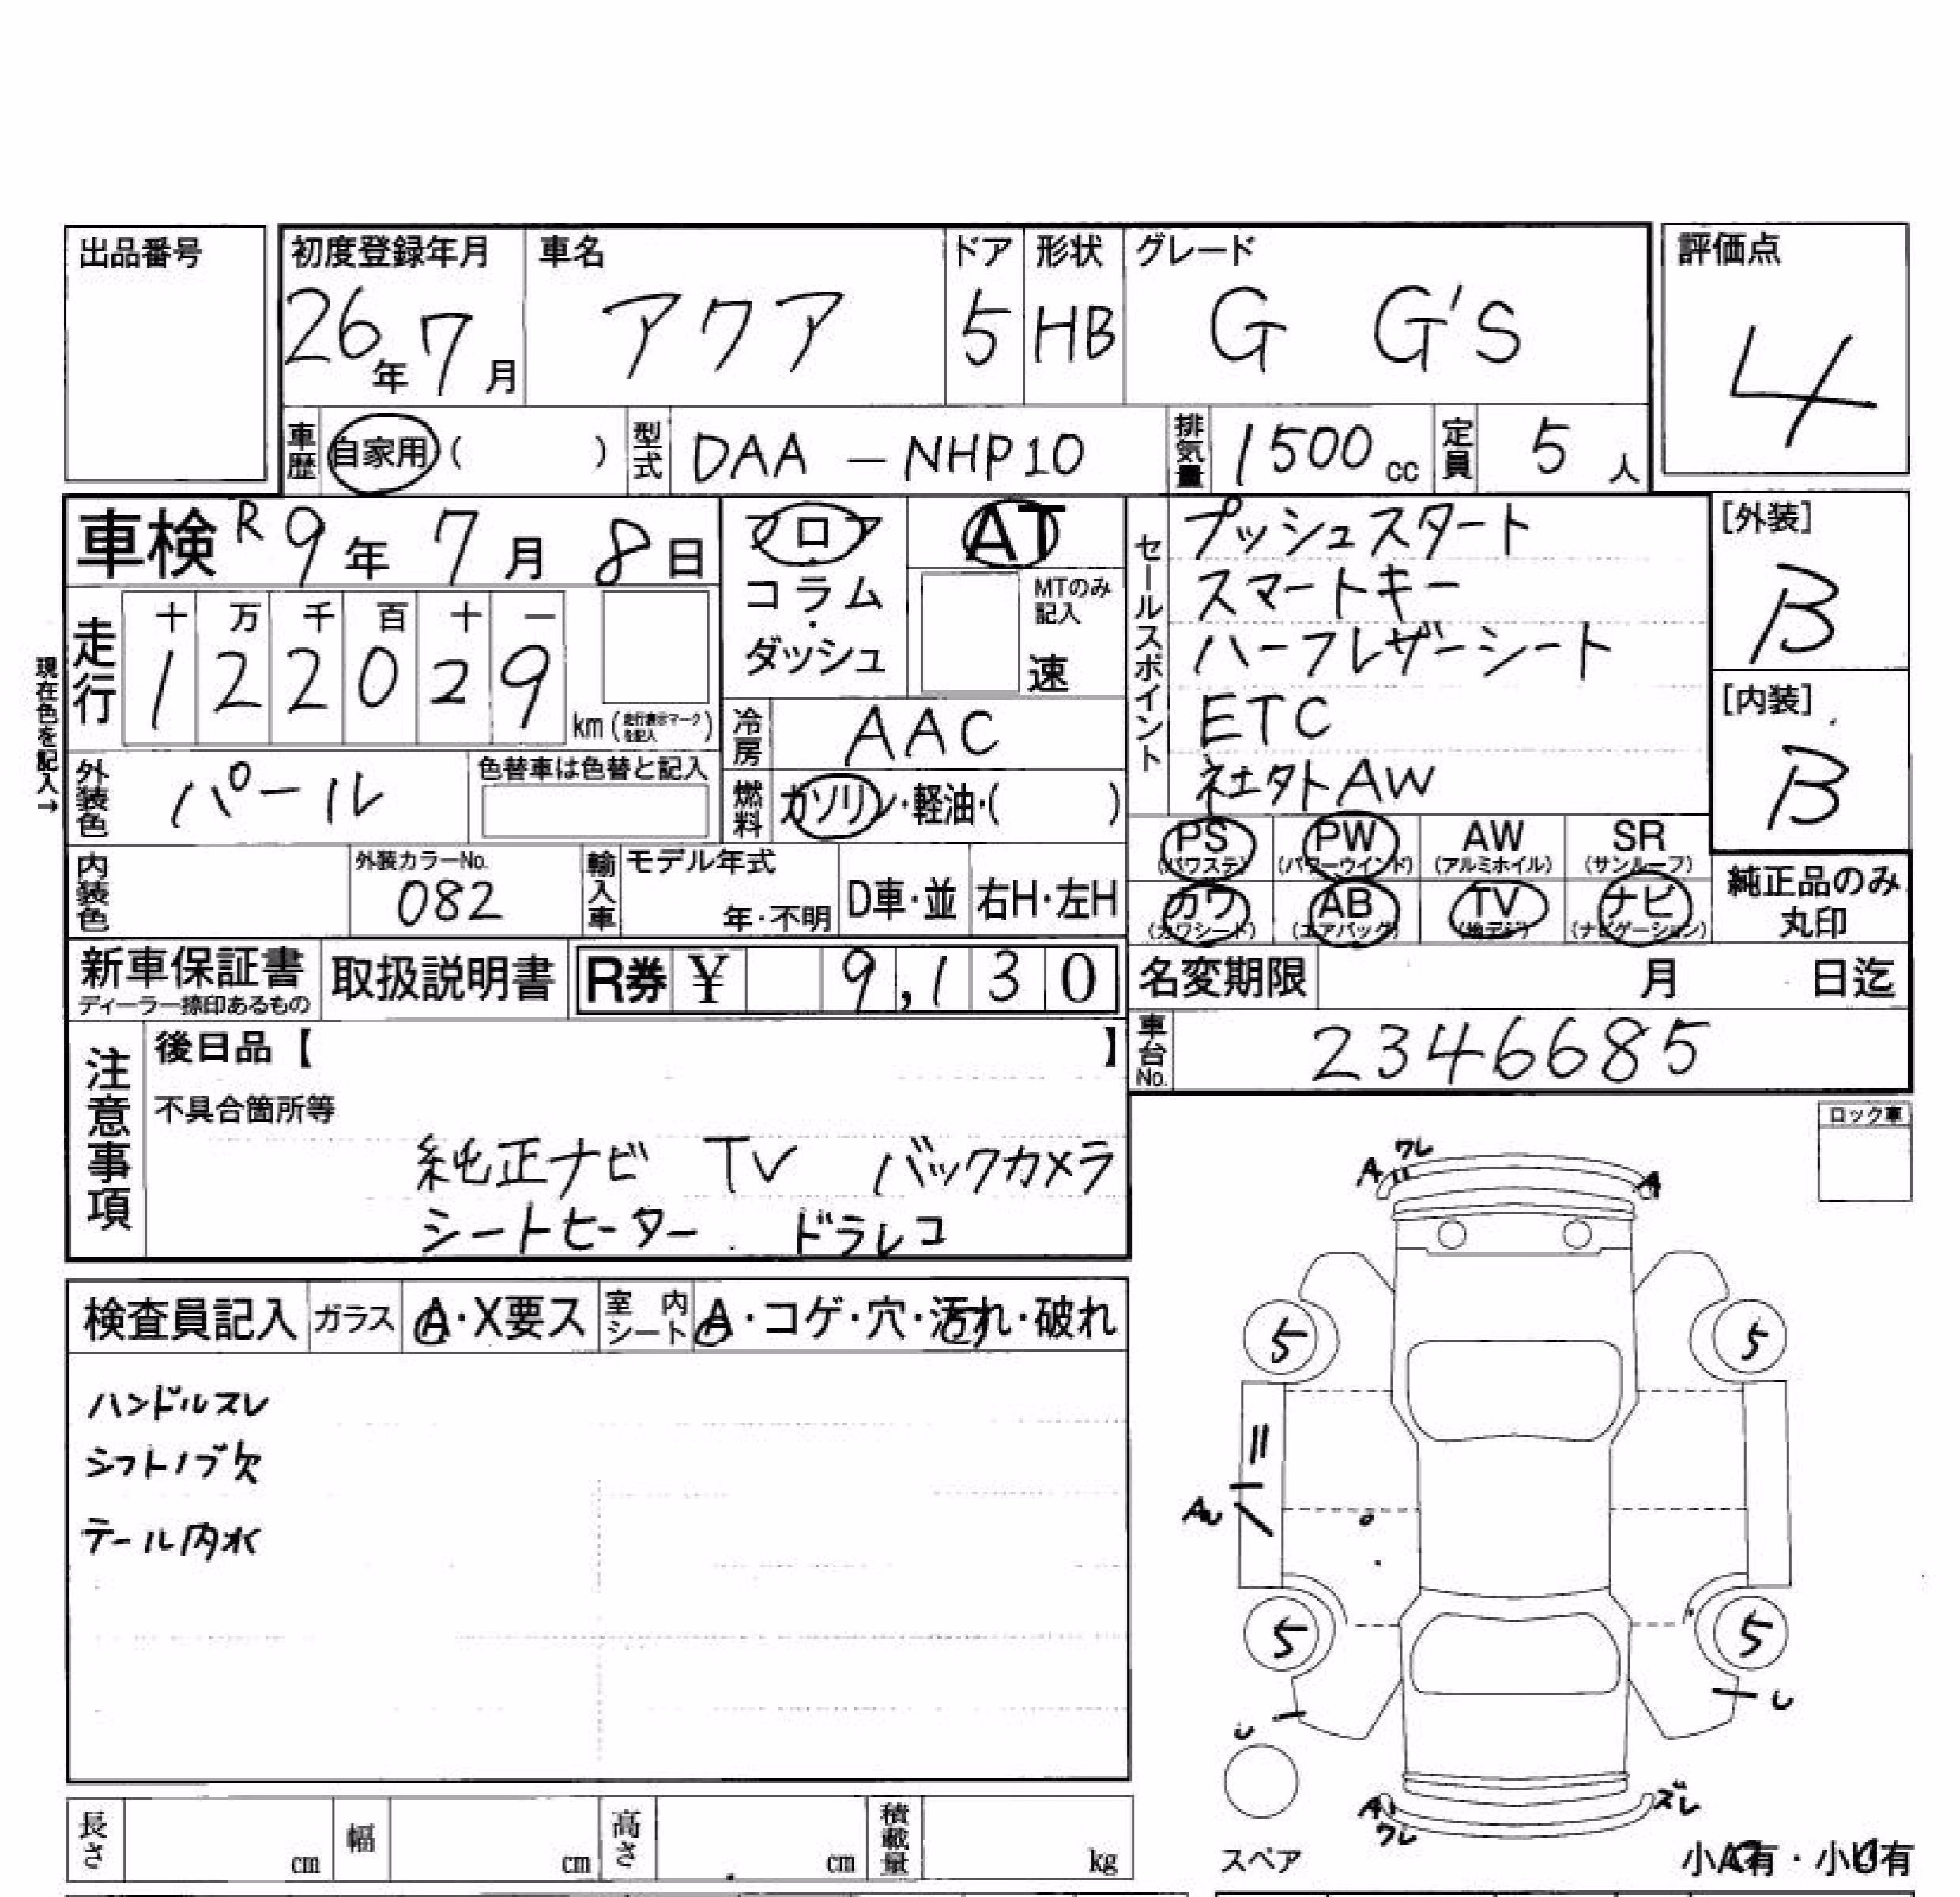 出品番号
初度登録年月
26年7月
車名
アクア
ドア
5
形状
HB
グレード
G G'S
評価点
4
車歴
自家用( )
型式
DAA-NHP10
排気量
1500cc
定員
5人
車検 R9年7月8日
フロア
コラム
・
ダッシュ
AT
MTのみ
記入
速
セールスポイント
プッシュスタート
スマートキー
ハーフレザーシート
ETC
社外AW
[外装]
B
[内装]
B
現在色を記入→
走行
十万千百十一
122029
km(走行表示マークを記入)
冷房
AAC
燃料
ガソリン・軽油・( )
外装色
パール
色替車は色替と記入
内装色
外装カラーNo.
082
輸入車
モデル年式
年・不明
D車・並
右H・左H
PS
(パワステ)
PW
(パワーウインド)
AW
(アルミホイル)
SR
(サンルーフ)
カワ
(カワシート)
AB
(エアバック)
TV
(地デジ)
ナビ
(ナビゲーション)
純正品のみ
丸印
新車保証書
ディーラー捺印あるもの
取扱説明書
R券 ¥ 9,130
名変期限 月 日迄
車台No.
2346685
注意事項
後日品【 】
不具合箇所等
純正ナビ TV バックカメラ
シートヒーター ドラレコ
ロック車
検査員記入
ガラス
A・X要ス
室内シート
A・コゲ・穴・汚れ・破れ
ハンドルスレ
シフトノブ欠
テール内水
A ワレ
A
5
5
AU
5
5
U
U
A
ワレ
ズレ
スペア
小A有・小U有
長さ
cm
幅
cm
高さ
cm
積載量
kg